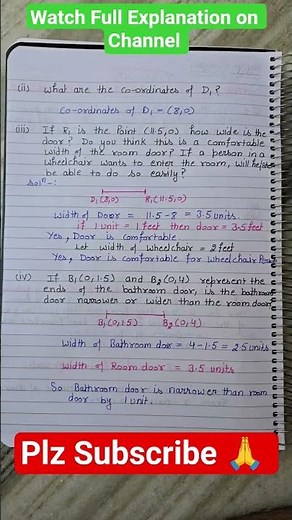 Watch Full Explanation on
Channel
(ii) What are the Co-ordinates of D₁?
Co-ordinates of D₁ = (8,0)
(iii) If R₁ is the Point (11.5,0) how wide is the
door? Do you think this is a comfortable
width of the room door? If a person in a
wheelchair wants to enter the room, will he/she
be able to do so easily?
Solⁿ-:
D₁(8,0) R₁(11.5,0)
Width of Door = 11.5-8 = 3.5 units.
if 1 unit = 1 feet then door = 3.5 feet
Yes, Door is comfortable
Let width of wheelchair = 2 feet
Yes, Door is comfortable for wheelchair
(iv) If B₁(0,1.5) and B₂(0,4) represent the
ends of the bathroom door, is the bathroom
door narrower or wider than the room door
B₁(0,1.5) B₂(0,4)
Width of Bathroom door = 4-1.5 = 2.5 units
Width of Room door = 3.5 units
So Bathroom door is narrower than room
door by 1 unit.
Plz Subscribe 🙏